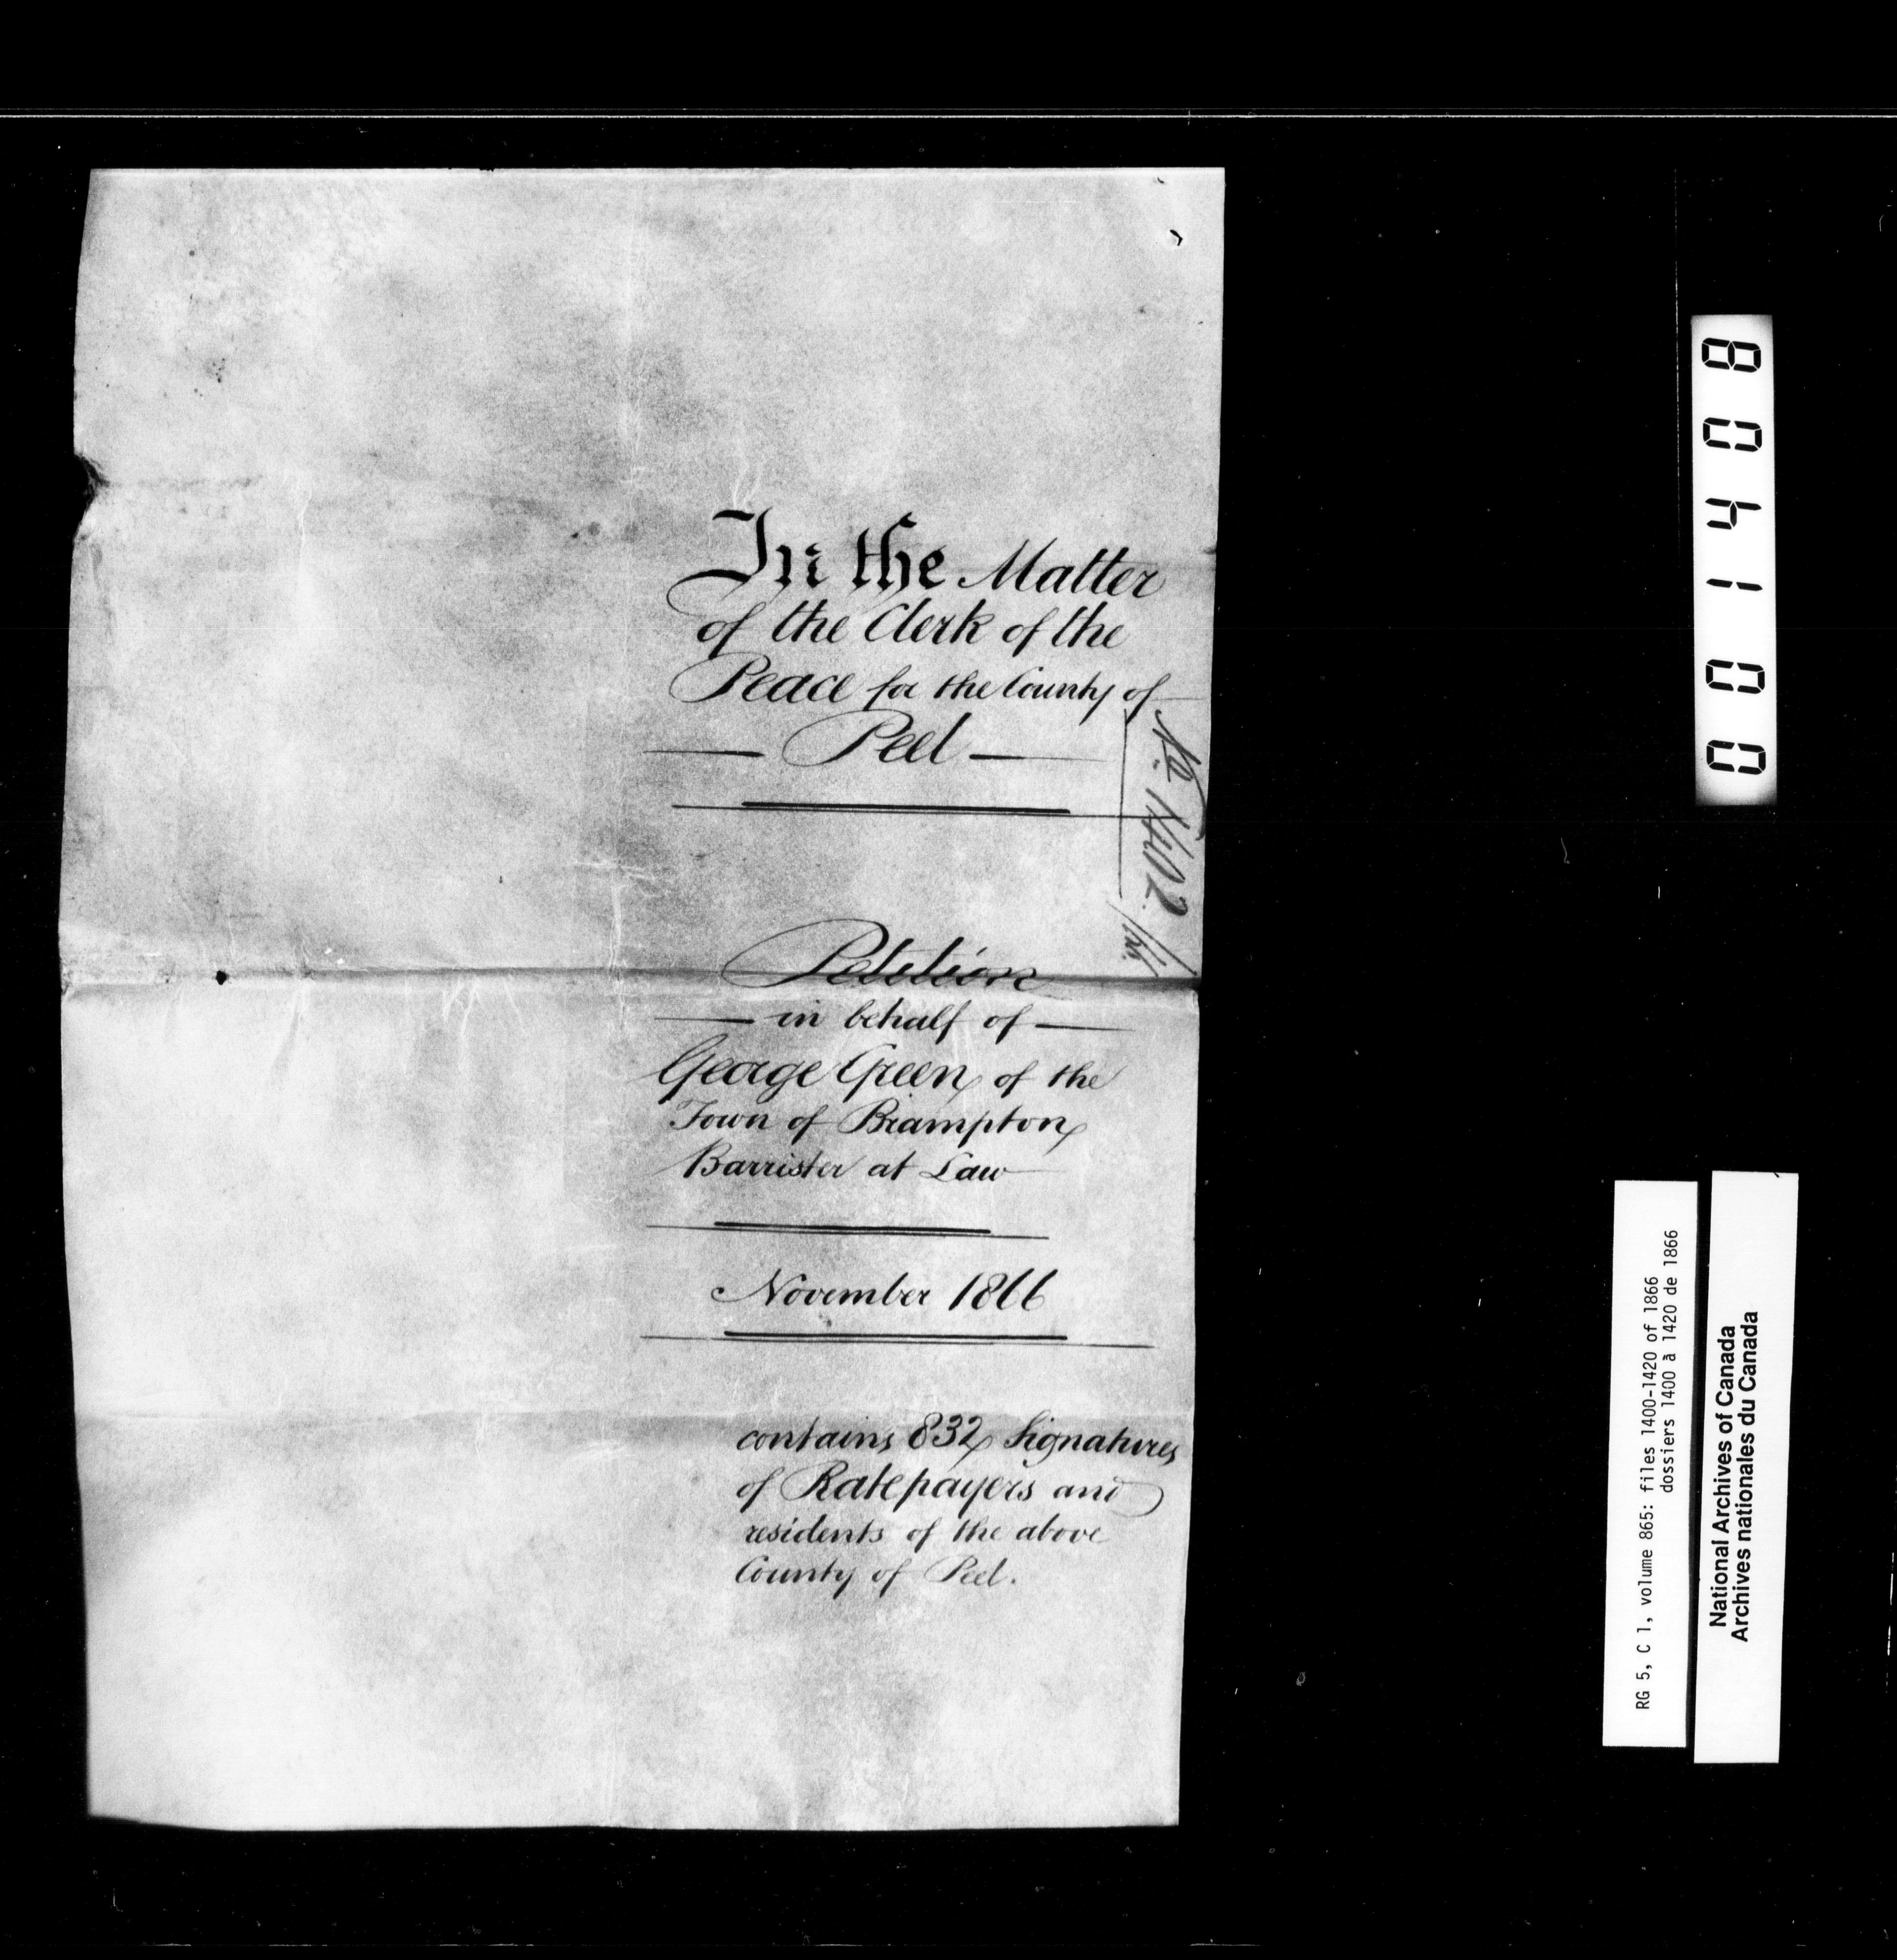 In the Matter
of the Clerk of the
Peace for the County of
Peel
No. 1402
Petition
in behalf of
George Green, of the
Town of Brampton,
Barrister at Law
November 1866
contains 832, Signatures
of Ratepayers and
residents of the above
County of Peel.
001408
RG 5, C 1, volume 865: files 1400-1420 of 1866
dossiers 1400 à 1420 de 1866
National Archives of Canada
Archives nationales du Canada